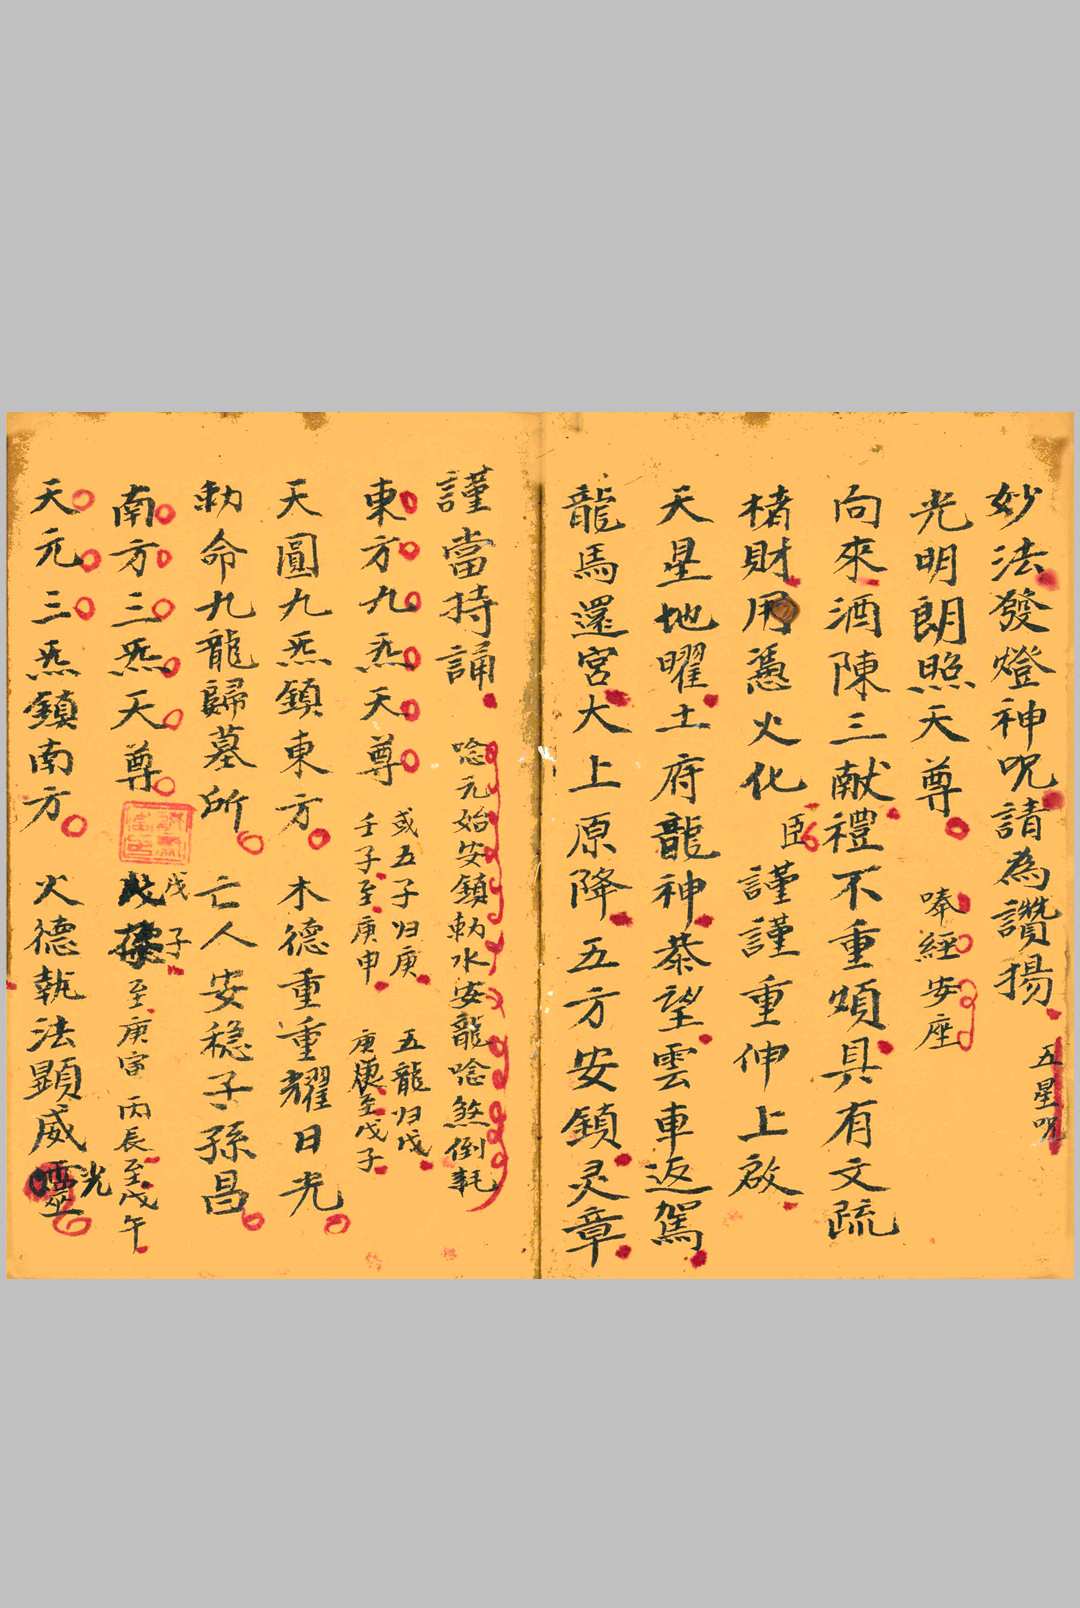 妙法發燈神呪請為讚揚 五星呪
光明朗照天尊 唪經安座
向來酒陳三献禮不重煩具有文疏
楮財用憑火化 臣謹謹重伸上啟
天星地曜土府龍神恭望雲車返駕
龍馬還宮大上原降五方安鎮灵章
謹當持誦 唸元始安鎮勅水安龍唸煞倒耗
東方九炁天尊 或五子归庚 五龍归戊
壬子至庚申 庚至戊子
天圓九炁鎮東方 木德重重耀日光
勅命九龍歸墓所 亡人安穏子孫昌
南方三炁天尊 戊子至庚寅 丙辰至戊午
天元三炁鎮南方 火德執法顯威光